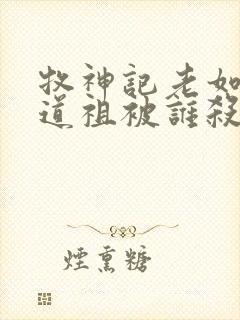 牧神記老如
道祖被誰殺
煙熏糖